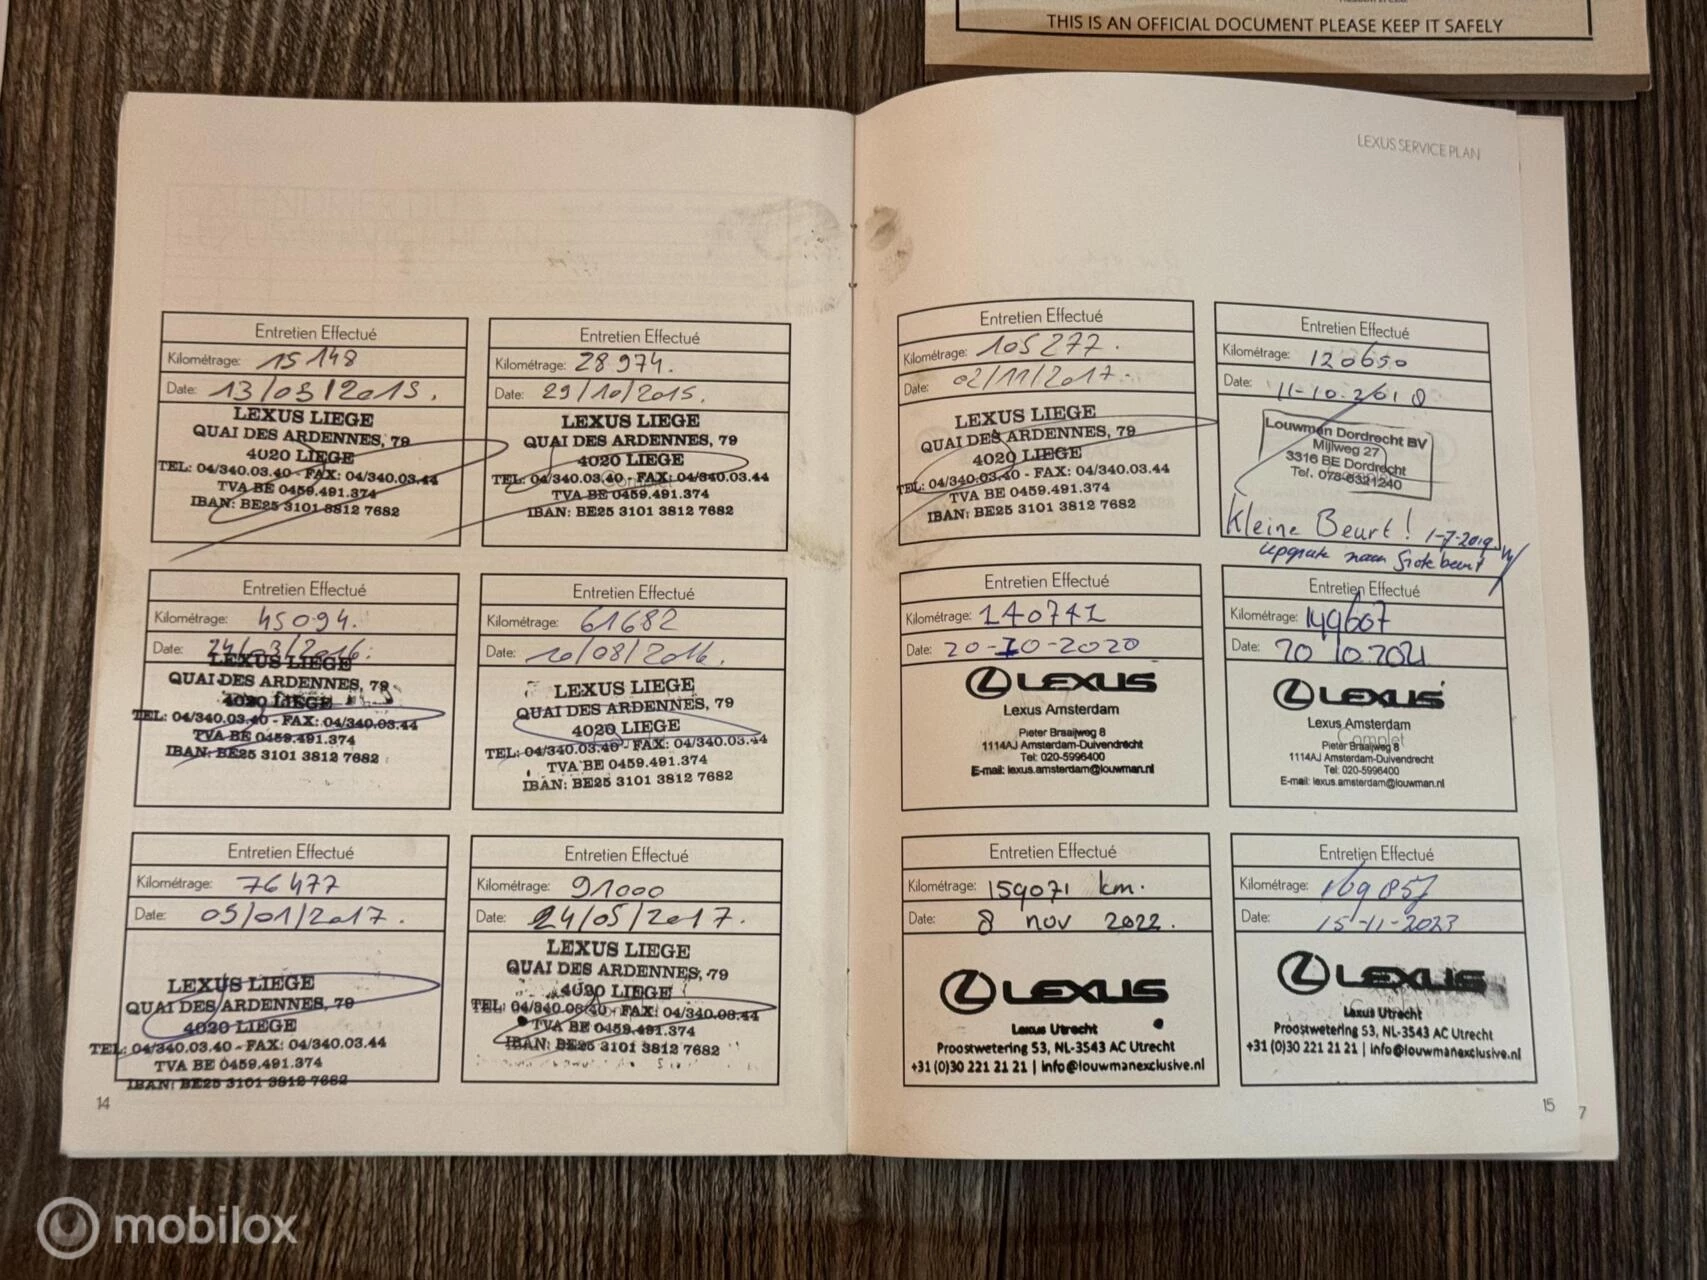 THIS IS AN OFFICIAL DOCUMENT PLEASE KEEP IT SAFELY
LEXUS SERVICE PLAN
Entretien Effectué
Kilométrage: 15 148
Date: 13/03/2015.
LEXUS LIEGE
QUAI DES ARDENNES, 79
4020 LIEGE
TEL: 04/340.03.40 - FAX: 04/340.03.44
TVA BE 0459.491.374
IBAN: BE25 3101 3812 7682
Entretien Effectué
Kilométrage: 28 974.
Date: 29/10/2015.
LEXUS LIEGE
QUAI DES ARDENNES, 79
4020 LIEGE
TEL: 04/340.03.40 - FAX: 04/340.03.44
Complet
TVA BE 0459.491.374
IBAN: BE25 3101 3812 7682
Entretien Effectué
Kilométrage: 45094.
Date: 24/03/2016.
LEXUS LIEGE
QUAI DES ARDENNES, 79
4020 LIEGE
TEL: 04/340.03.40 - FAX: 04/340.03.44
TVA BE 0459.491.374
IBAN: BE25 3101 3812 7682
Entretien Effectué
Kilométrage: 61682
Date: 10/08/2016.
LEXUS LIEGE
QUAI DES ARDENNES, 79
4020 LIEGE
TEL: 04/340.03.40 - FAX: 04/340.03.44
TVA BE 0459.491.374
IBAN: BE25 3101 3812 7682
Entretien Effectué
Kilométrage: 76477
Date: 05/01/2017.
LEXUS LIEGE
QUAI DES ARDENNES, 79
4020 LIEGE
TEL: 04/340.03.40 - FAX: 04/340.03.44
TVA BE 0459.491.374
IBAN: BE25 3101 3812 7682
Entretien Effectué
Kilométrage: 91000
Date: 24/05/2017.
LEXUS LIEGE
QUAI DES ARDENNES, 79
4020 LIEGE
TEL: 04/340.03.40 - FAX: 04/340.03.44
TVA BE 0459.491.374
IBAN: BE25 3101 3812 7682
14
Entretien Effectué
Kilométrage: 105277.
Date: 02/11/2017.
LEXUS LIEGE
QUAI DES ARDENNES, 79
4020 LIEGE
TEL: 04/340.03.40 - FAX: 04/340.03.44
TVA BE 0459.491.374
IBAN: BE25 3101 3812 7682
Entretien Effectué
Kilométrage: 120650
Date: 11-10-2018
Louwman Dordrecht BV
Mijlweg 27
3316 BE Dordrecht
Tel. 078-6321240
Kleine Beurt! 1-7-2019
upgrade naar Grote beurt
Entretien Effectué
Kilométrage: 140741
Date: 20-10-2020
LEXUS
Lexus Amsterdam
Pieter Braaijweg 8
1114AJ Amsterdam-Duivendrecht
Tel: 020-5996400
E-mail: lexus.amsterdam@louwman.nl
Entretien Effectué
Kilométrage: 149607
Date: 20 10.2021
LEXUS
Lexus Amsterdam
Complet
Pieter Braaijweg 8
1114AJ Amsterdam-Duivendrecht
Tel: 020-5996400
E-mail: lexus.amsterdam@louwman.nl
Entretien Effectué
Kilométrage: 159071 km.
Date: 8 nov 2022.
LEXUS
Lexus Utrecht
Proostwetering 53, NL-3543 AC Utrecht
+31 (0)30 221 21 21 | info@louwmanexclusive.nl
Entretien Effectué
Kilométrage: 169857
Date: 15-11-2023
LEXUS
Complet
Lexus Utrecht
Proostwetering 53, NL-3543 AC Utrecht
+31 (0)30 221 21 21 | info@louwmanexclusive.nl
15
7
mobilox